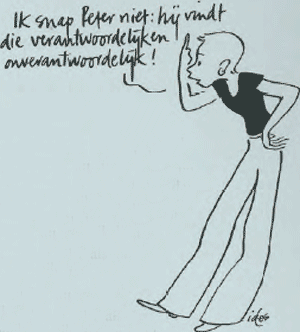 Ik snap Peter niet: hij vindt
die verantwoordelijken
onverantwoordelijk!
ides